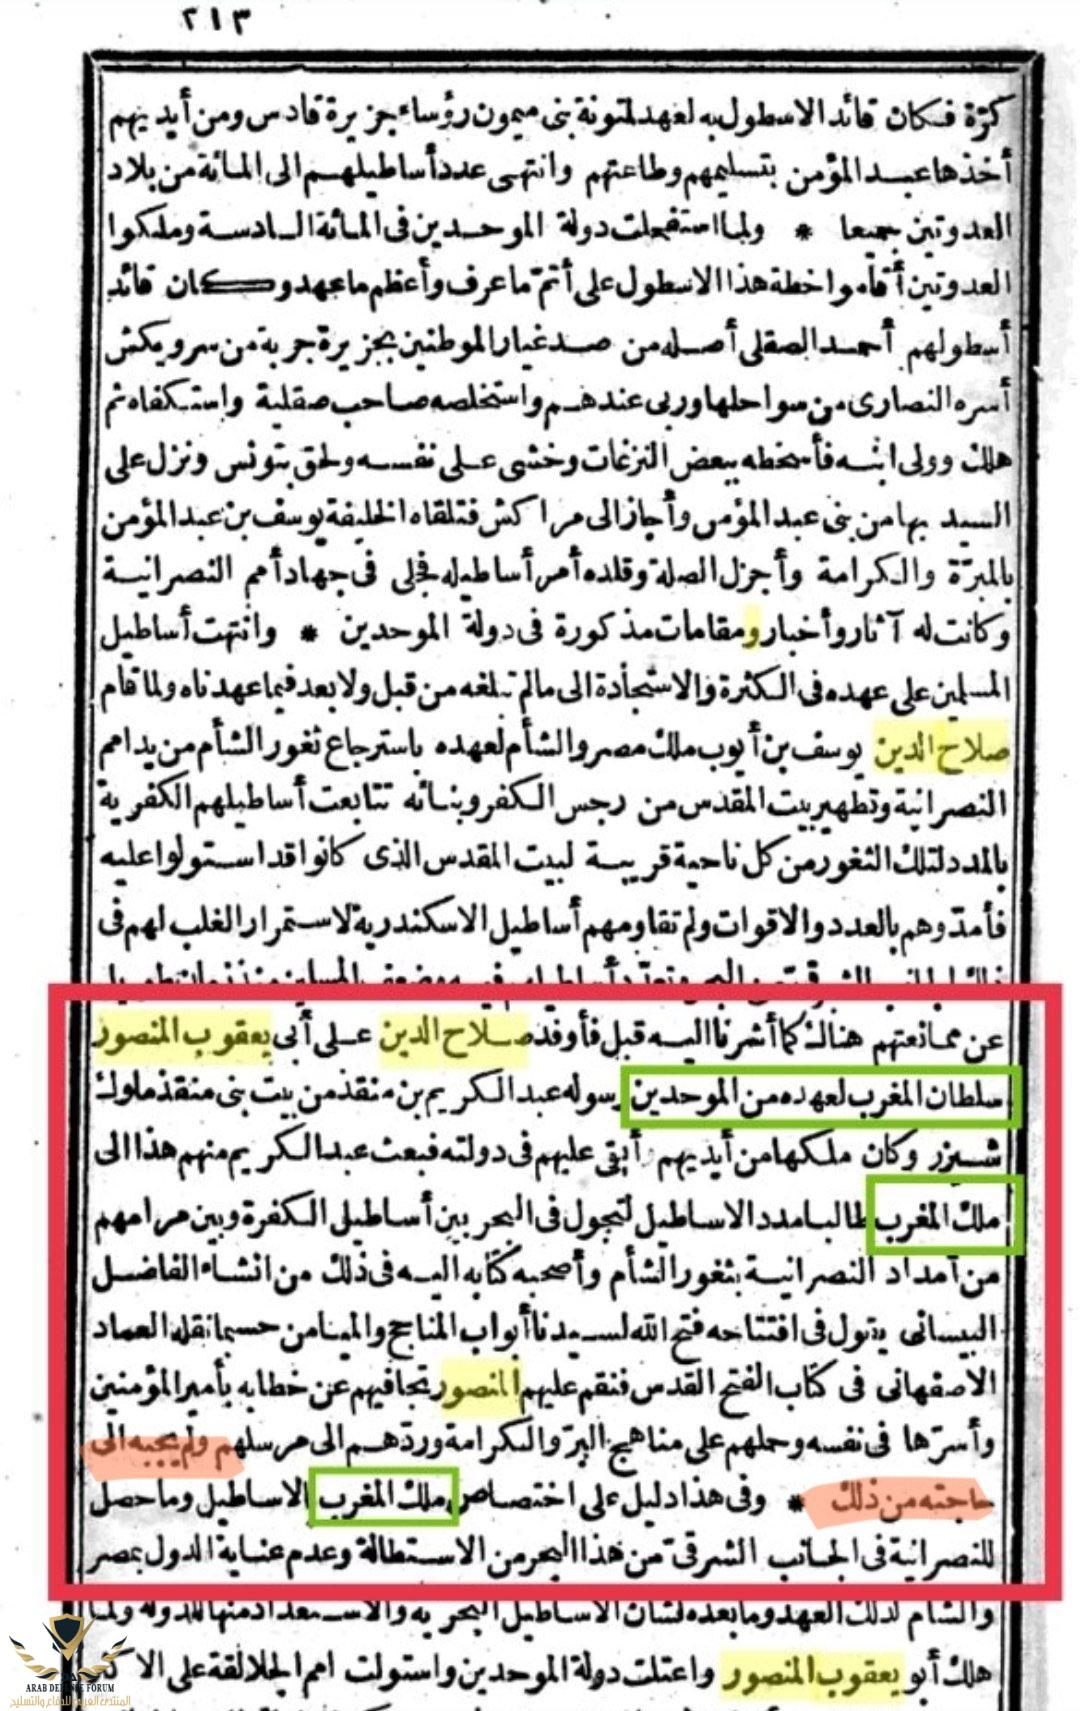 ٢١٣
كثرة فكان قائد الاسطول به لعهد لمتونة بنى ميمون رؤساء جزيرة قادس ومن أيديهم
أخذها عبد المؤمن بتسليمهم وطاعتهم وانتهى عدد أساطيلهم الى المائة من بلاد
العدوتين جميعا * ولما استفحلت دولة الموحدين فى المائة السادسة وملكوا
العدوتين أقاموا خطة هذا الاسطول على أتم ما عرف وأعظم ما عهد وكان قائد
أسطولهم أحمد الصقلى أصله من صدغيار الموطنين بجزيرة جربة من سرويكش
أسره النصارى من سواحلها وربى عندهم واستخلصه صاحب صقلية واستكفاه ثم
هلك وولى ابنه فأسخطه ببعض النزغات وخشى على نفسه ولحق بتونس ونزل على
السيد بها من بنى عبد المؤمن وأجاز الى مراكش فتلقاه الخليفة يوسف بن عبد المؤمن
بالمبرّة والكرامة وأجزل الصلة وقلده أمر أساطيله فجلى فى جهاد أمم النصرانية
وكانت له آثار وأخبار ومقامات مذكورة فى دولة الموحدين * وانتهت أساطيل
المسلمين على عهده فى الكثرة والاستجادة الى مالم تبلغه من قبل ولا بعد فيما عهدناه ولما قام
صلاح الدين يوسف بن أيوب ملك مصر والشأم لعهده باسترجاع ثغور الشأم من يد امم
النصرانية وتطهير بيت المقدس من رجس الكفر وبنائه تتابعت أساطيلهم الكفرية
بالمدد لتلك الثغور من كل ناحية قريبة لبيت المقدس الذى كانوا قد استولوا عليه
فأمدّوهم بالعدد والاقوات ولم تقاومهم أساطيل الاسكندرية لاستمرار الغلب لهم فى
ذلك الجانب الشرقىّ من البحر وتعدّد أساطيلهم فيه وضعف المسلمين منذ زمان طويل
عن ممانعتهم هنالك كما أشرنا اليه قبل فأوفد صلاح الدين على أبى يعقوب المنصور
سلطان المغرب لعهده من الموحدين رسوله عبد الكريم بن منقذ من بيت بنى منقذ ملوك
شيزر وكان ملكها من أيديهم وأبقى عليهم فى دولته فبعث عبد الكريم منهم هذا الى
ملك المغرب طالبا مدد الاساطيل لتجول فى البحر بين أساطيل الكفرة وبين مرامهم
من امداد النصرانية بثغور الشأم وأصحبه كتابه اليه فى ذلك من انشاء الفاضل
البيسانى يقول فى افتتاحه فتح الله لسيدنا أبواب المناجح والميامن حسبما نقله العماد
الاصفهانى فى كتاب الفتح القدسى فنقم عليهم المنصور تجافيهم عن خطابه بأمير المؤمنين
وأسرّها فى نفسه وحملهم على مناهج البرّ والكرامة وردّهم الى مرسلهم ولم يجبه الى
حاجته من ذلك * وفى هذا دليل على اختصاص ملك المغرب بالاساطيل وما حصل
للنصرانية فى الجانب الشرقىّ من هذا البحر من الاستطالة وعدم عناية الدول بمصر
والشأم لذلك العهد وما بعده لشأن الاساطيل البحرية والاستعداد منها للدولة ولما
هلك أبو يعقوب المنصور واعتلت دولة الموحدين واستولت امم الجلالقة على الاكثر
ARAB DEFENSE FORUM
المنتدى العربي للدفاع والتسليح